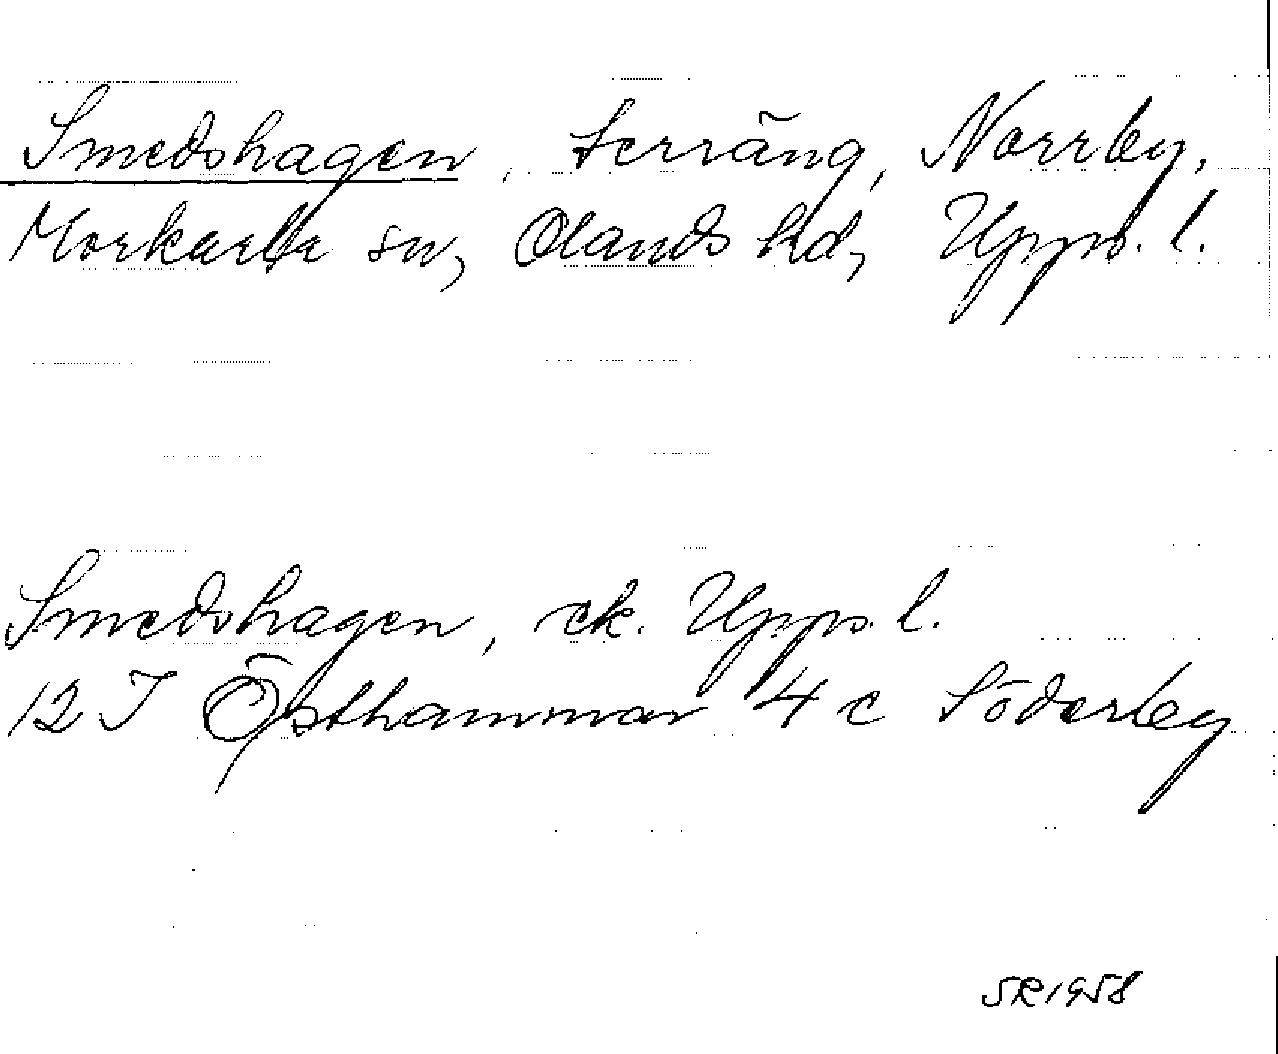 Smedshagen, terräng, Norrby,
Morkarla sn, Olands hd, Upps. l.
Smedshagen, ek. Upps. l.
12 I Östhammar 4 c Söderby
SR 1958